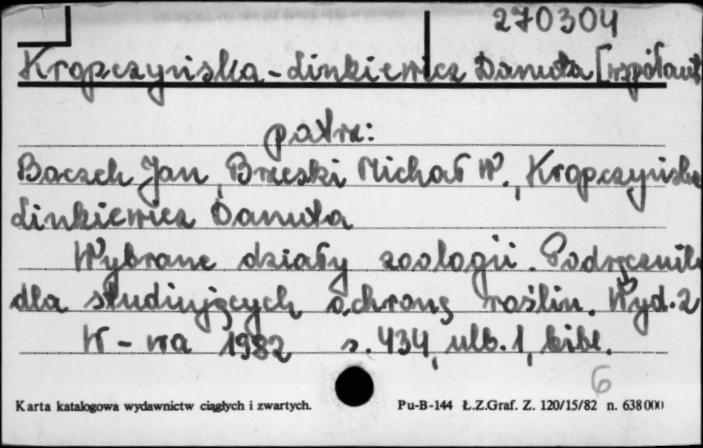 270304
Kropczyńska-Linkiewicz Danuta [współaut
patrz:
Boczek Jan, Brzeski Michał W., Kropczyńska
Linkiewicz Danuta
Wybrane działy zoologii. Podręcznik
dla studiujących ochronę roślin. Wyd. 2
W-wa 1982 s. 434, ulb. 1, bibl.
6
Karta katalogowa wydawnictw ciągłych i zwartych. Pu-B-144 Ł.Z.Graf. Z. 120/15/82 n. 638000